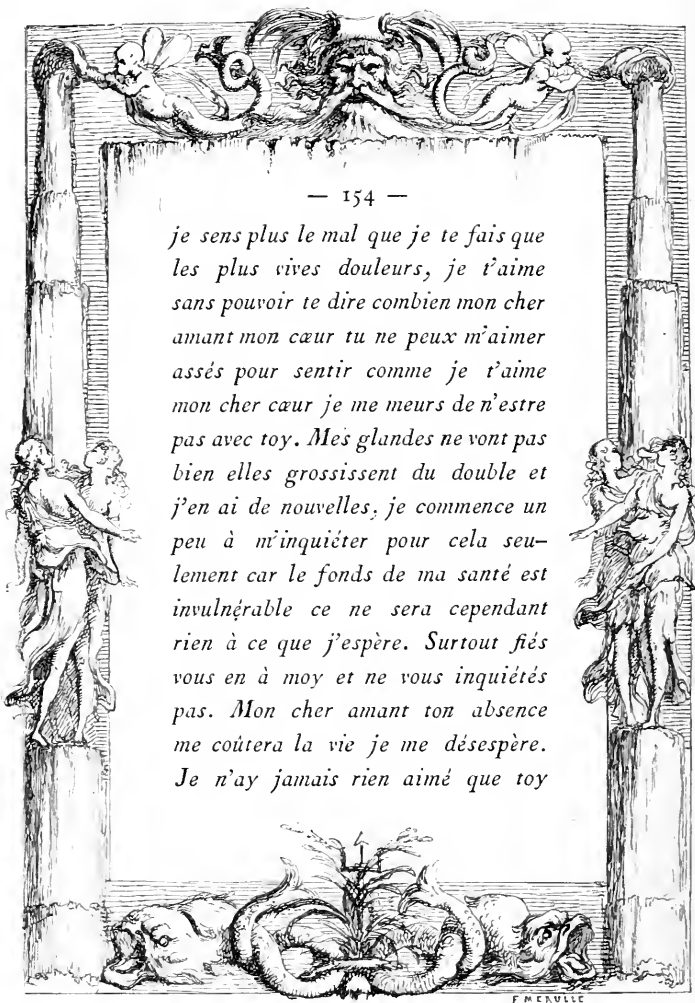 — 154 —
je sens plus le mal que je te fais que
les plus vives douleurs, je t'aime
sans pouvoir te dire combien mon cher
amant mon cœur tu ne peux m'aimer
assés pour sentir comme je t'aime
mon cher cœur je me meurs de n'estre
pas avec toy. Mes glandes ne vont pas
bien elles grossissent du double et
j'en ai de nouvelles, je commence un
peu à m'inquiéter pour cela seu-
lement car le fonds de ma santé est
invulnérable ce ne sera cependant
rien à ce que j'espère. Surtout fiés
vous en à moy et ne vous inquiétés
pas. Mon cher amant ton absence
me coûtera la vie je me désespère.
Je n'ay jamais rien aimé que toy
F MEAULLE